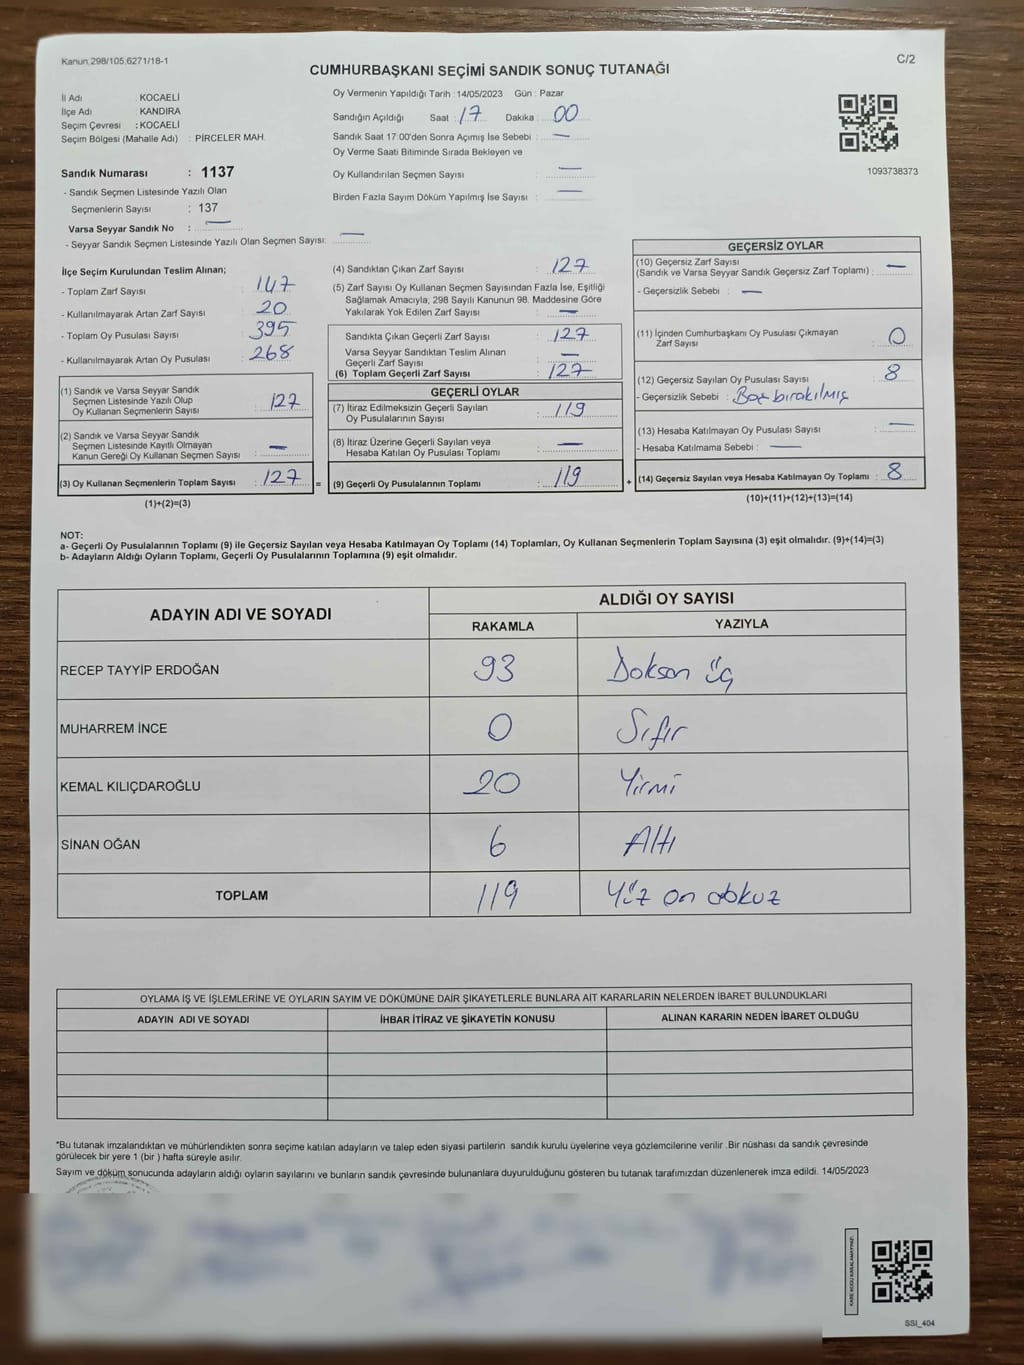 Kanun.298/105.6271/18-1
C/2
CUMHURBAŞKANI SEÇİMİ SANDIK SONUÇ TUTANAĞI
İl Adı : KOCAELİ
İlçe Adı : KANDIRA
Seçim Çevresi : KOCAELİ
Seçim Bölgesi (Mahalle Adı) : PİRCELER MAH.
Sandık Numarası : 1137
- Sandık Seçmen Listesinde Yazılı Olan
Seçmenlerin Sayısı : 137
Varsa Seyyar Sandık No : —
- Seyyar Sandık Seçmen Listesinde Yazılı Olan Seçmen Sayısı: —
Oy Vermenin Yapıldığı Tarih :14/05/2023 Gün : Pazar
Sandığın Açıldığı Saat : 17 Dakika : 00
Sandık Saat 17.00'den Sonra Açımış İse Sebebi : —
Oy Verme Saati Bitiminde Sırada Bekleyen ve
Oy Kullandırılan Seçmen Sayısı : —
Birden Fazla Sayım Döküm Yapılmış İse Sayısı : —
1093738373
İlçe Seçim Kurulundan Teslim Alınan;
- Toplam Zarf Sayısı : 147
- Kullanılmayarak Artan Zarf Sayısı : 20
- Toplam Oy Pusulası Sayısı : 395
- Kullanılmayarak Artan Oy Pusulası : 268
(1) Sandık ve Varsa Seyyar Sandık
Seçmen Listesinde Yazılı Olup
Oy Kullanan Seçmenlerin Sayısı : 127
(2) Sandık ve Varsa Seyyar Sandık
Seçmen Listesinde Kayıtlı Olmayan
Kanun Gereği Oy Kullanan Seçmen Sayısı : —
(3) Oy Kullanan Seçmenlerin Toplam Sayısı : 127
(1)+(2)=(3)
=
(4) Sandıktan Çıkan Zarf Sayısı : 127
(5) Zarf Sayısı Oy Kullanan Seçmen Sayısından Fazla İse, Eşitliği
Sağlamak Amacıyla; 298 Sayılı Kanunun 98. Maddesine Göre
Yakılarak Yok Edilen Zarf Sayısı : —
Sandıkta Çıkan Geçerli Zarf Sayısı : 127
Varsa Seyyar Sandıktan Teslim Alınan
Geçerli Zarf Sayısı : —
(6) Toplam Geçerli Zarf Sayısı : 127
GEÇERLİ OYLAR
(7) İtiraz Edilmeksizin Geçerli Sayılan
Oy Pusulalarının Sayısı : 119
(8) İtiraz Üzerine Geçerli Sayılan veya
Hesaba Katılan Oy Pusulası Toplamı : —
(9) Geçerli Oy Pusulalarının Toplamı : 119
+
GEÇERSİZ OYLAR
(10) Geçersiz Zarf Sayısı
(Sandık ve Varsa Seyyar Sandık Geçersiz Zarf Toplamı) : —
- Geçersizlik Sebebi : —
(11) İçinden Cumhurbaşkanı Oy Pusulası Çıkmayan
Zarf Sayısı : 0
(12) Geçersiz Sayılan Oy Pusulası Sayısı : 8
- Geçersizlik Sebebi : Boş bırakılmış
(13) Hesaba Katılmayan Oy Pusulası Sayısı : —
- Hesaba Katılmama Sebebi : —
(14) Geçersiz Sayılan veya Hesaba Katılmayan Oy Toplamı : 8
(10)+(11)+(12)+(13)=(14)
NOT:
a- Geçerli Oy Pusulalarının Toplamı (9) ile Geçersiz Sayılan veya Hesaba Katılmayan Oy Toplamı (14) Toplamları, Oy Kullanan Seçmenlerin Toplam Sayısına (3) eşit olmalıdır. (9)+(14)=(3)
b- Adayların Aldığı Oyların Toplamı, Geçerli Oy Pusulalarının Toplamına (9) eşit olmalıdır.
ADAYIN ADI VE SOYADI
ALDIĞI OY SAYISI
RAKAMLA YAZIYLA
RECEP TAYYİP ERDOĞAN 93 Doksan üç
MUHARREM İNCE 0 Sıfır
KEMAL KILIÇDAROĞLU 20 Yirmi
SİNAN OĞAN 6 Altı
TOPLAM 119 Yüz on dokuz
OYLAMA İŞ VE İŞLEMLERİNE VE OYLARIN SAYIM VE DÖKÜMÜNE DAİR ŞİKAYETLERLE BUNLARA AİT KARARLARIN NELERDEN İBARET BULUNDUKLARI
ADAYIN ADI VE SOYADI İHBAR İTİRAZ VE ŞİKAYETİN KONUSU ALINAN KARARIN NEDEN İBARET OLDUĞU
*Bu tutanak imzalandıktan ve mühürlendikten sonra seçime katılan adayların ve talep eden siyasi partilerin sandık kurulu üyelerine veya gözlemcilerine verilir .Bir nüshası da sandık çevresinde
görülecek bir yere 1 (bir ) hafta süreyle asılır.
Sayım ve döküm sonucunda adayların aldığı oyların sayılarını ve bunların sandık çevresinde bulunanlara duyurulduğunu gösteren bu tutanak tarafımızdan düzenlenerek imza edildi. 14/05/2023
KARE KODU KARALAMAYINIZ!
SSI_404